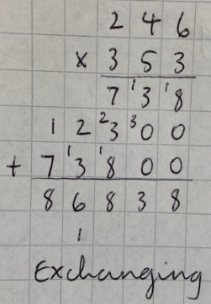 2 4 6
x 3 5 3
7 ¹3 ¹8
1 2 ²3 ³0 0
+ 7 ¹3 ¹8 0 0
8 6 8 3 8
1
Exchanging